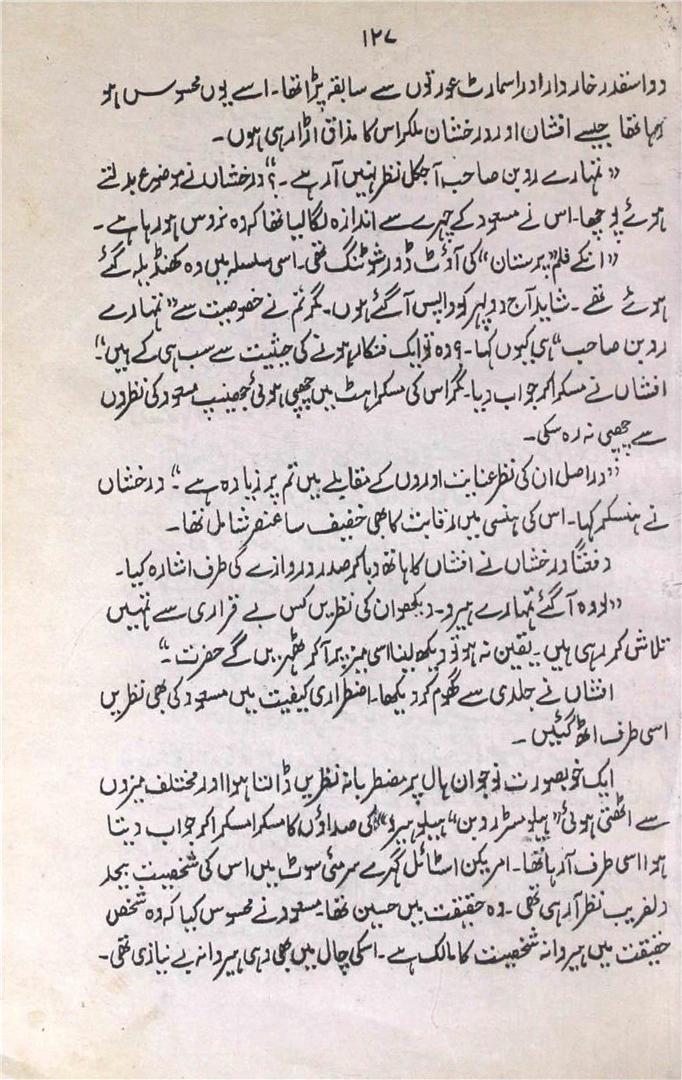 ۱۲۷
دو اسقدر خار دار اور اسمارٹ عورتوں سے سابقہ پڑا تھا۔ اسے یوں محسوس ہو
رہا تھا جیسے افشاں اور درخشاں ملکر اس کا مذاق اڑا رہی ہوں۔
”تمہارے روبن صاحب آجکل نظر نہیں آرہے ۔؟“ درخشاں نے موضوع بدلتے
ہوئے پوچھا۔ اس نے مسعود کے چہرے سے اندازہ لگا لیا تھا کہ وہ نروس ہو رہا ہے ۔
”انکے فلم ”پرستان“ کی آؤٹ ڈور شوٹنگ تھی۔ اسی سلسلہ میں وہ کھنڈیلہ گئے
ہوئے تھے ۔ شاید آج دوپہر کو واپس آگئے ہوں۔ مگر تم نے خصوصیت سے ”تمہارے
روبن صاحب“ ہی کیوں کہا۔؟ وہ تو ایک فنکار ہونے کی حیثیت سے سب ہی کے ہیں“۔
افشاں نے مسکرا کر جواب دیا۔ مگر اس کی مسکراہٹ میں چھپی ہوئی جھینپ مسعود کی نظروں
سے چھپی نہ رہ سکی۔
”دراصل ان کی نظر عنایت اوروں کے مقابلے میں تم پر زیادہ ہے“۔ درخشاں
نے ہنسکر کہا۔ اس کی ہنسی میں رقابت کا بھی خفیف سا عنصر شامل تھا۔
دفعتاً درخشاں نے افشاں کا ہاتھ دبا کر صدر دروازے کی طرف اشارہ کیا۔
”لو وہ آگئے تمہارے ہیرو۔ دیکھو ان کی نظریں کس بے قراری سے تمہیں
تلاش کر رہی ہیں۔ یقین نہ ہو تو دیکھ لینا اسی میز پر آکر ٹھہریں گے حضرت ۔“
افشاں نے جلدی سے گھوم کر دیکھا۔ اضطراری کیفیت میں مسعود کی بھی نظریں
اسی طرف اٹھ گئیں ۔
ایک خوبصورت نوجوان ہال پر مضطربانہ نظریں ڈالتا ہوا اور مختلف میزوں
سے اٹھتی ہوئی ”ہیلو مسٹر روبن“ ”ہیلو ہیرو“ کی صداؤں کا مسکرا مسکرا کر جواب دیتا
ہوا اسی طرف آرہا تھا۔ امریکن اسٹائل گہرے سرمئی سوٹ میں اس کی شخصیت بیحد
دلفریب نظر آرہی تھی ۔ وہ حقیقت میں حسین تھا۔ مسعود نے محسوس کیا کہ وہ شخص
حقیقت میں ہیروانہ شخصیت کا مالک ہے ۔ اسکی چال میں بھی وہی ہیروانہ بے نیازی تھی ۔